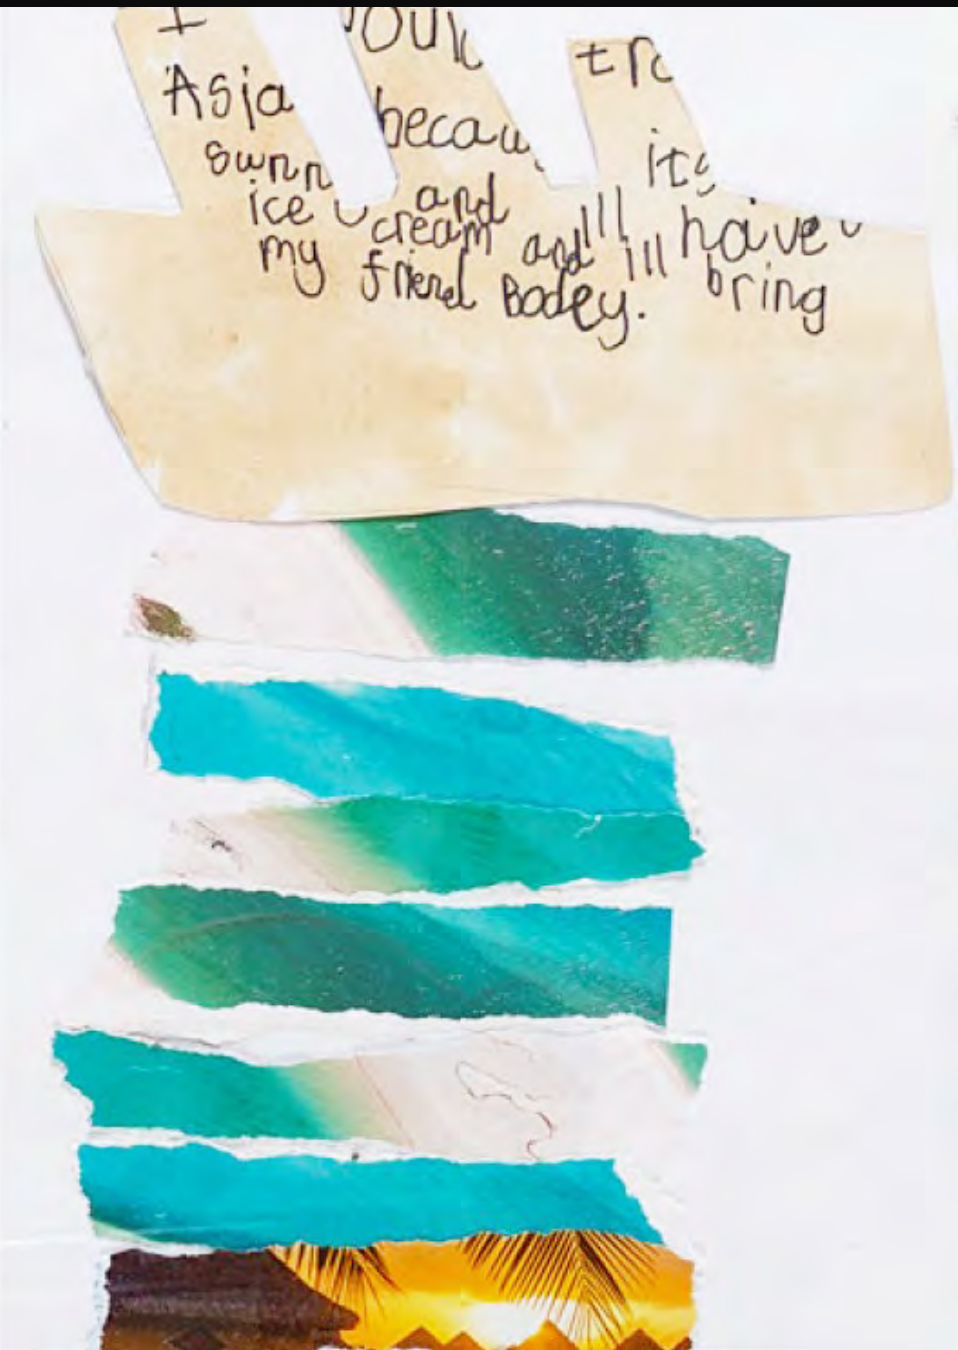 I oul tra
Asia becau its
sunn and I'll have
ice cream and I'll bring
my friend Bodey.